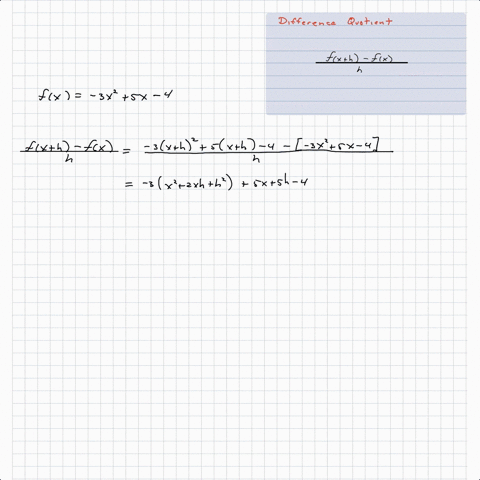 Difference Quotient
f(x+h) - f(x)
h
f(x) = -3x² + 5x - 4
f(x+h) - f(x) = -3(x+h)² + 5(x+h) - 4 - [-3x² + 5x - 4]
h h
= -3(x² + 2xh + h²) + 5x + 5h - 4